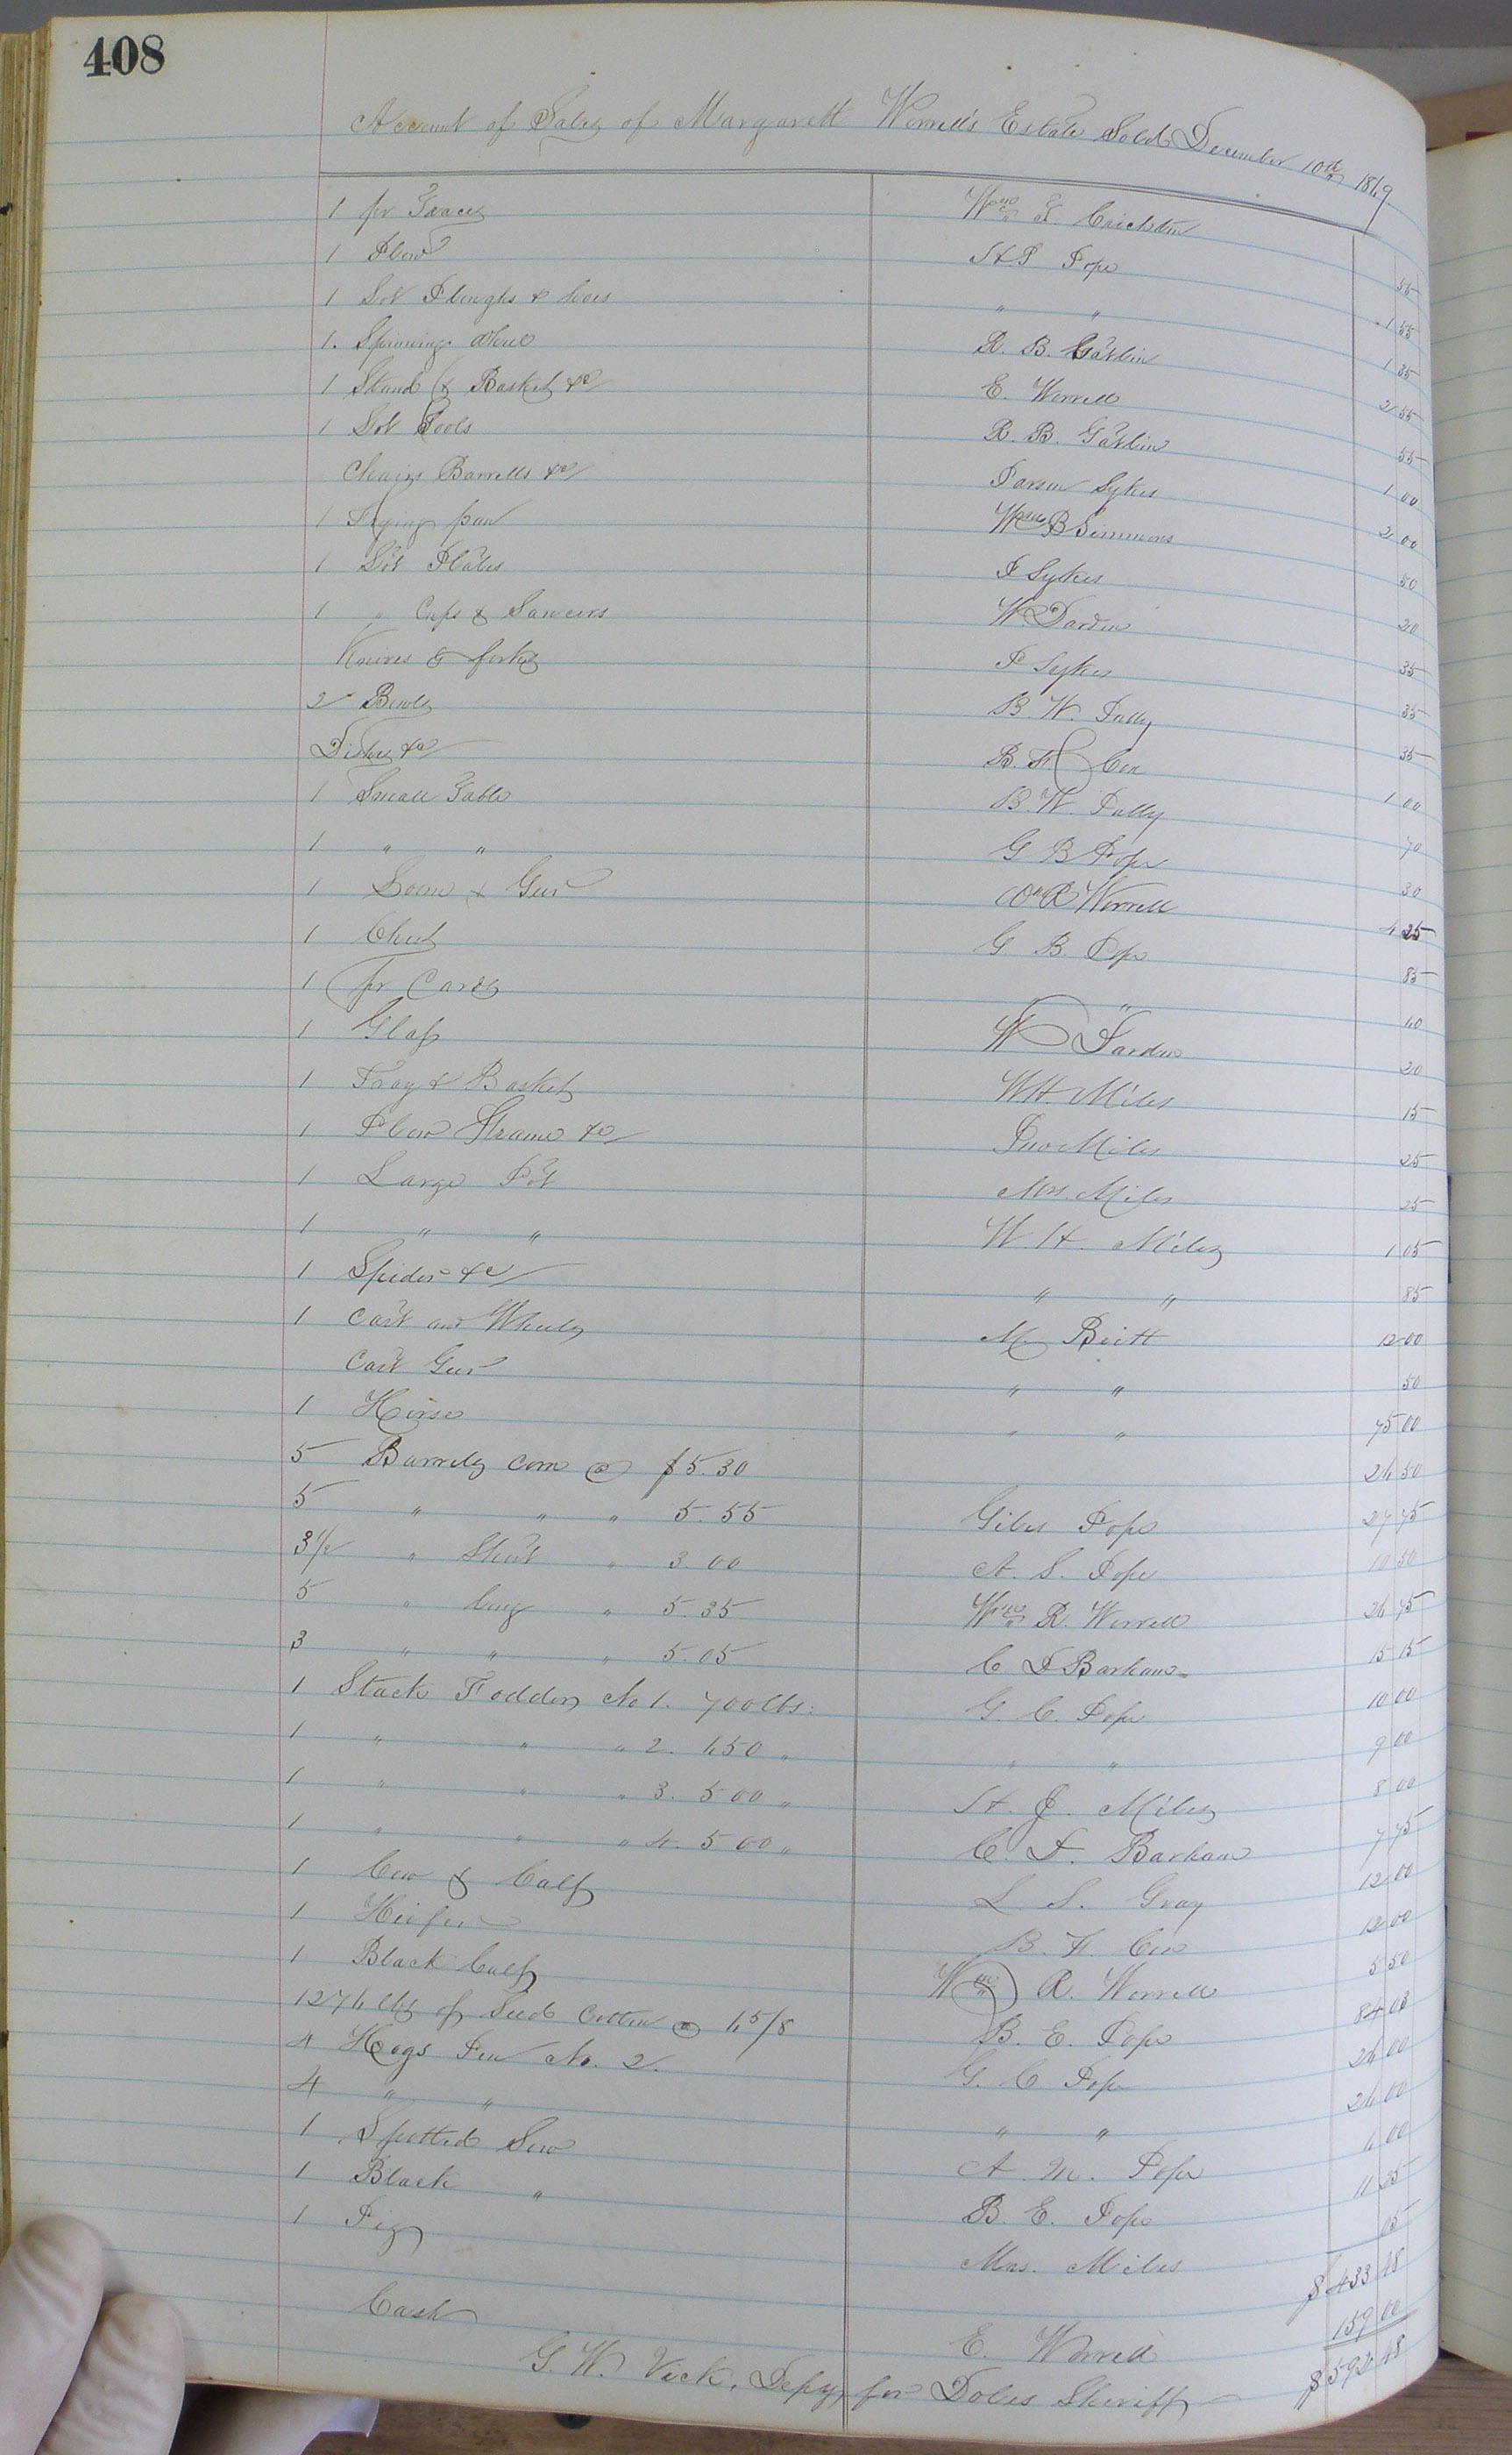 408
Account of Sales of Margarett Worrell's Estate Sold December 10th 1869
1 pr Traces Wm T. Crichton 55
1 Plow A P Pope 1 55
1 Lot Ploughs & hoes " " 1 35
1. Spinning Wheel R. B. Gatlin 2 55
1 Stand & Basket &c E. Worrell 55
1 Lot Tools R. B. Gatlin 1 00
Chairs Barrells &c Parson Sykes 2 00
1 Frying pan Wm B Simmons 50
1 Lot Plates P Sykes 20
1 " Cups & Saucers W Darden 35
Knives & forks P Sykes 35
2 Bowls B. W. Pully 35
Dishes &c B. F. Cox 1 00
1 Small Table B. W. Pully 70
1 " " G B Pope 30
1 Loom & Gear Wm R Worrell 4 25
1 Chest G B. Pope 85
1 pr Cards " " 60
1 Glass W Darden 20
1 Tray & Basket W H. Miles 15
1 Plow Frame &c Jno Miles 25
1 Large Pot Mrs. Miles 25
1 " " W. H. Miles 1 05
1 Spider &c " " 85
1 Cart and Wheels M Britt 12 00
Cart Gear " " 50
1 Horse " " 75 00
5 Barrels Corn @ $5.30 26 50
5 " " " 5.55 Giles Pope 27 75
3 1/2 " Short " 3.00 A. S. Pope 10 50
5 " long " 5.35 Wm R. Worrell 26 75
3 " " " 5.05 C. F Barham 15 15
1 Stack Fodder No 1. 700 lbs: G. C. Pope 10 00
1 " " " 2. 650 " " " 9 00
1 " " " 3. 500 " A. J. Miles 8 00
1 " " " 4. 500 " C. F. Barham 7 75
1 Cow & Calf L. S. Gray 12 00
1 Heifer B. F. Cox 12 00
1 Black Calf Wm R. Worrell 5 50
1274 lbs of Seed Cotton @ 6 5/8 B. E. Pope 84 03
4 Hogs Pen No. 2. G. C. Pope 26 00
4 " " " " 26 00
1 Spotted Sow A. M. Pope 6 00
1 Black " B. E. Pope 11 25
1 Pig Mrs. Miles 05
$ 433 48
Cash E. Worrell 159 00
$592 48
G. W. Vick, Depy, for Doles Sheriff